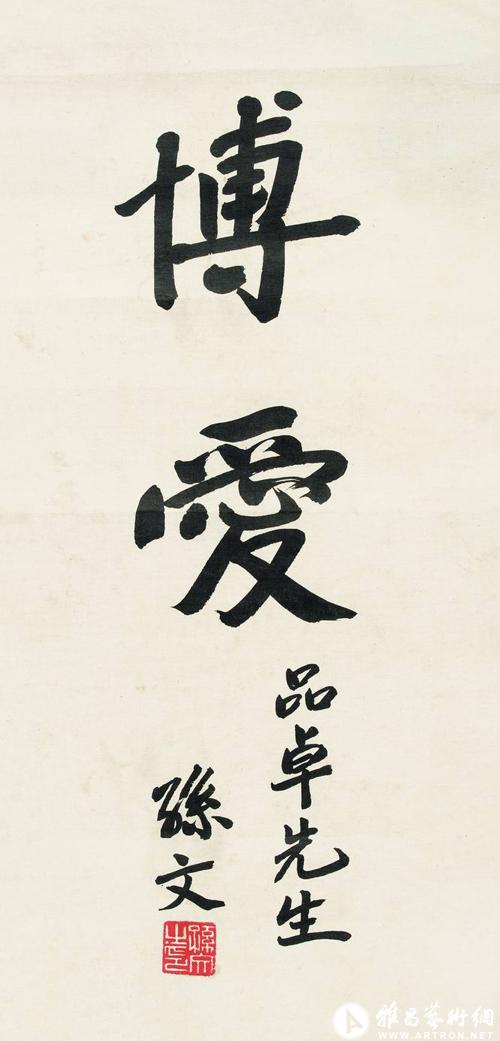 博愛
品卓先生
孫文
孫文之印
雅昌藝術網
WWW.ARTRON.NET